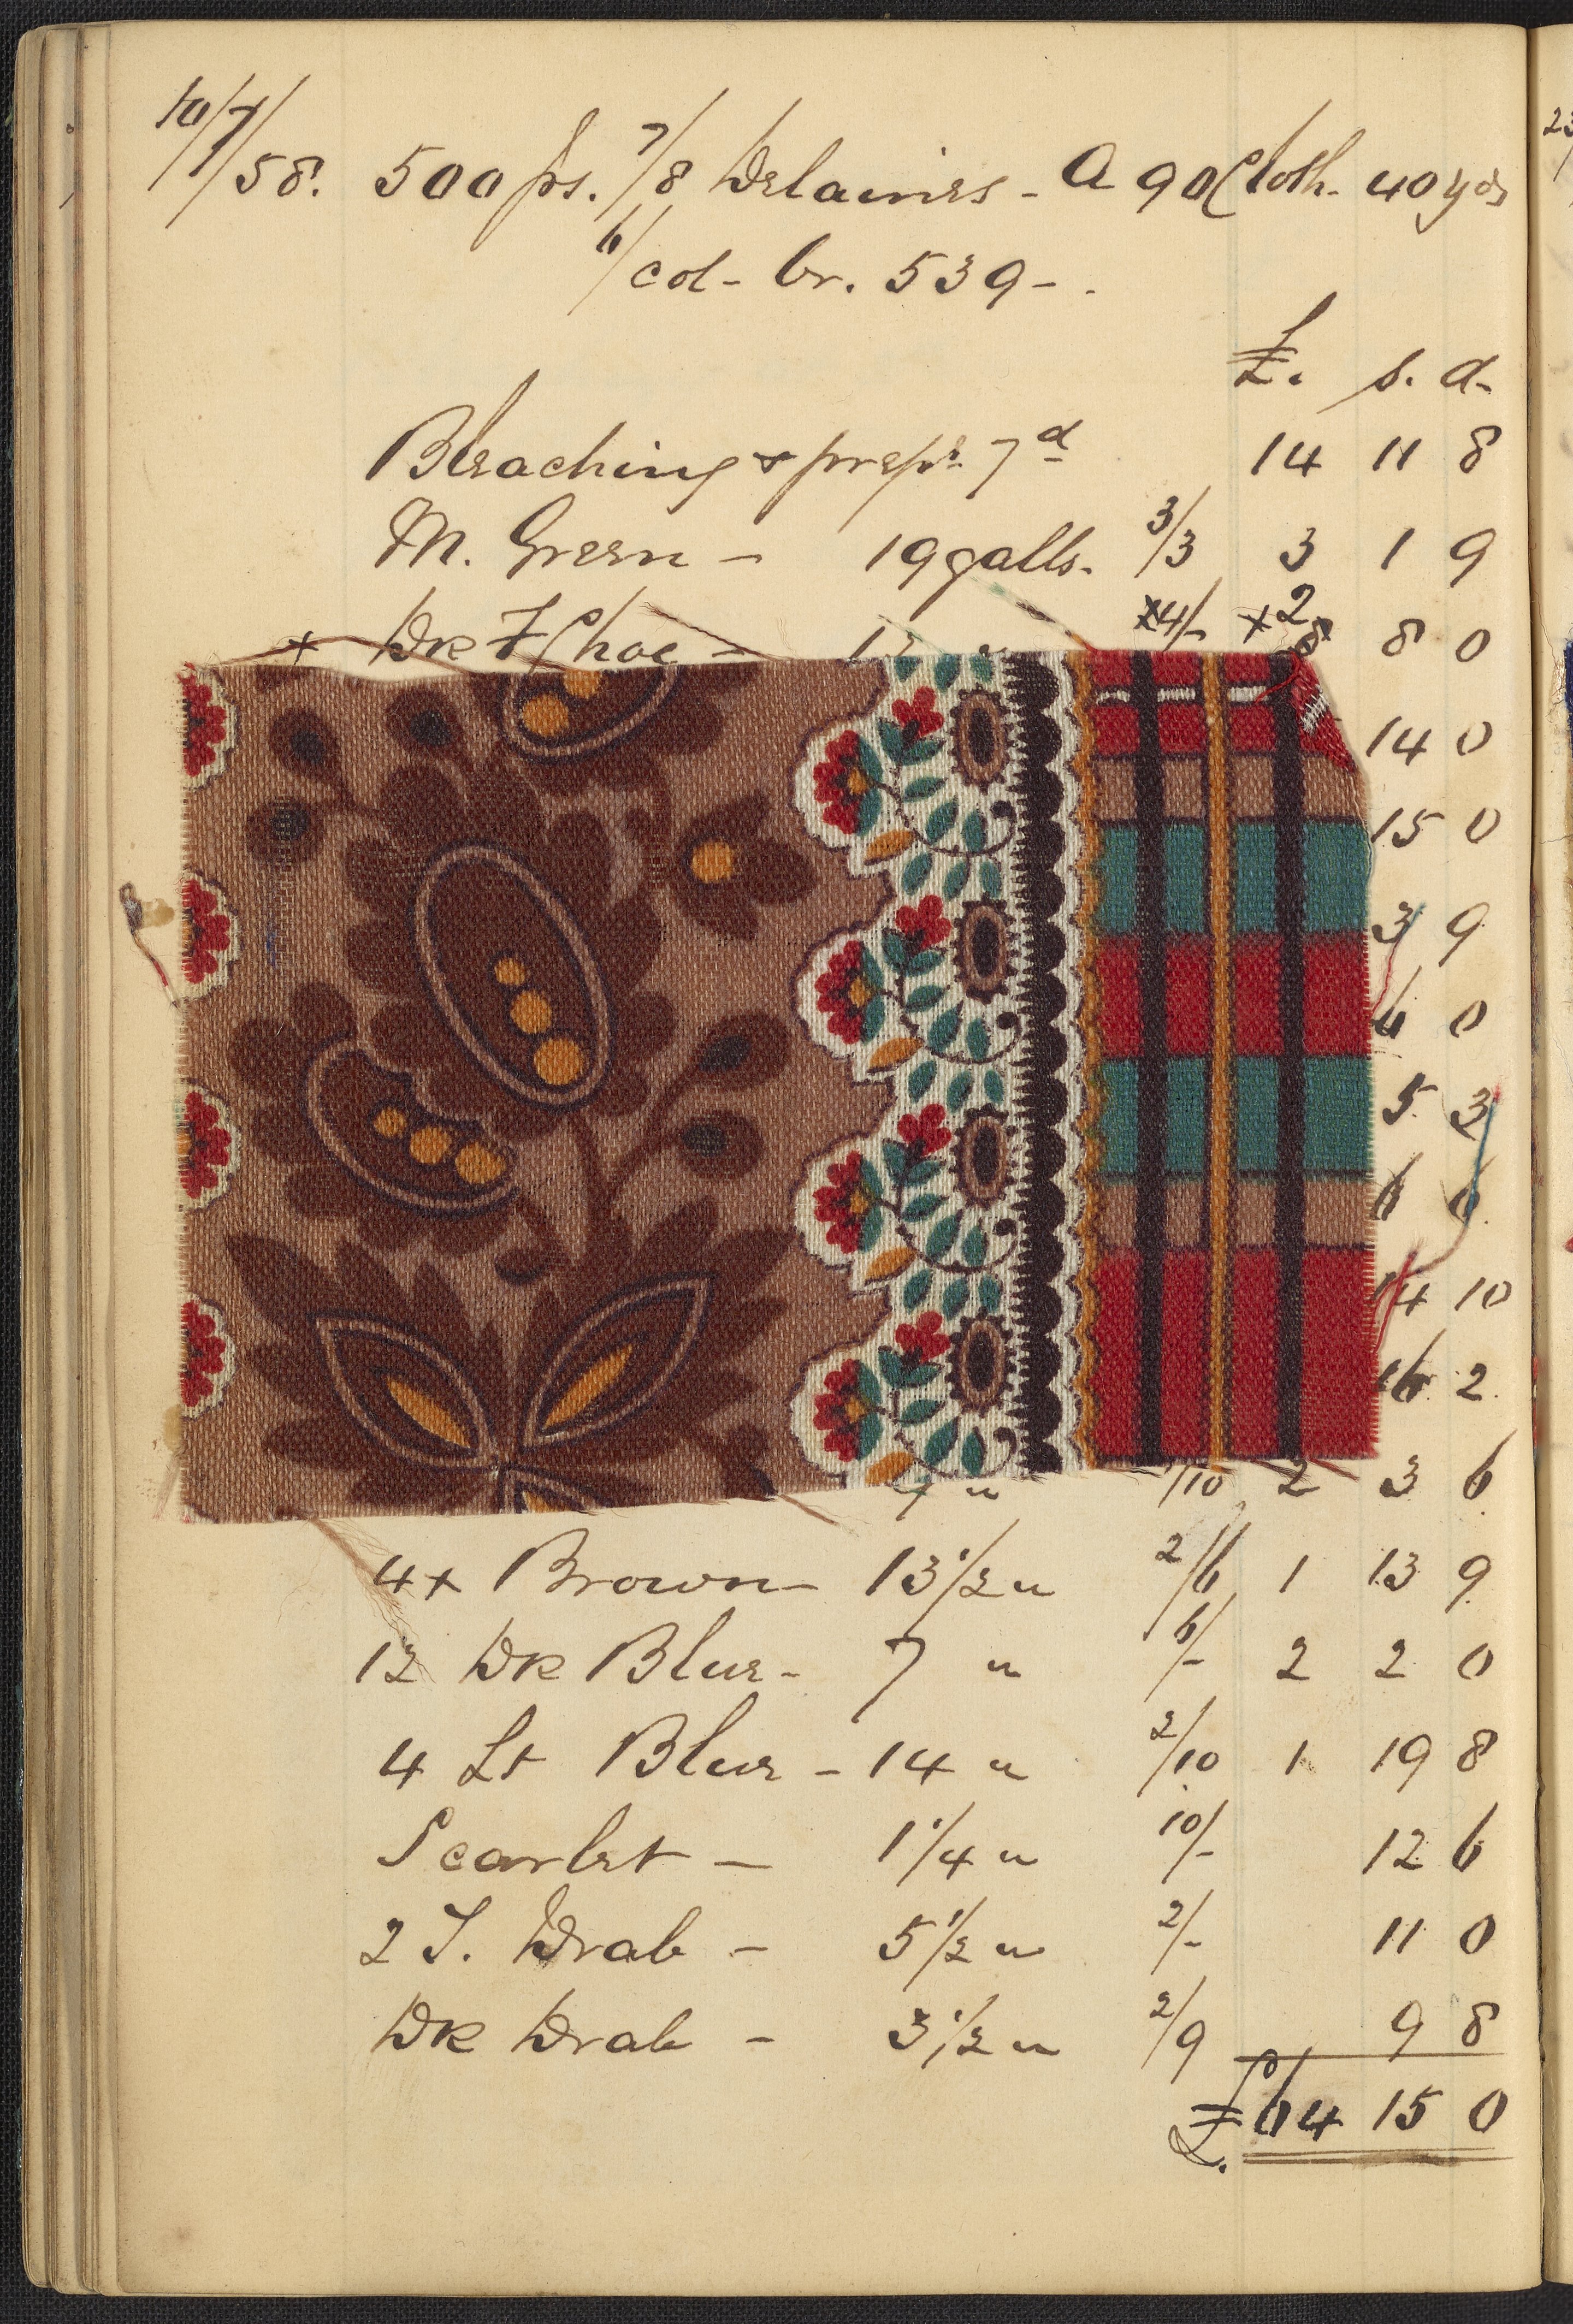 10/7/58. 500 ps. 7/8 Delaines - A 90 Cloth. 40 yds
6/col - br. 539 - .
£. s. d.
Bleaching & prepg 7d 14 11 8
M. Green - 19 galls. 3/3 3 1 9
+ Dk F Choc - 12 " x4/- x2 8 0
14 0
15 0
3 9
6 0
5 3
6 6
14 10
16 2
" 1/10 2 3 6
4x Brown - 13 1/2 " 2/6 1 13 9
12 Dk Blue - 7 " 6/- 2 2 0
4 Lt Blue - 14 " 2/10 1 19 8
Scarlet - 1 1/4 " 10/- 12 6
2 F. Drab - 5 1/2 " 2/- 11 0
Dk Drab - 3 1/2 " 2/9 9 8
£64 15 0